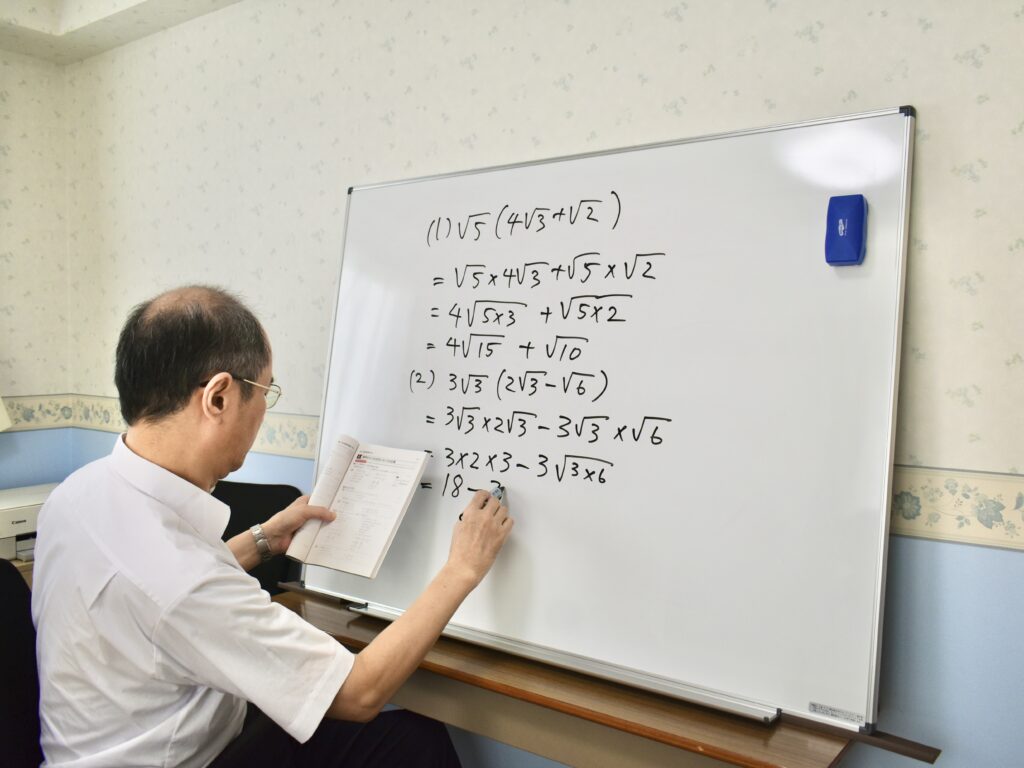 (1) √5 (4√3+√2)
= √5×4√3+√5×√2
= 4√5×3 +√5×2
= 4√15 + √10
(2) 3√3 (2√3-√6)
= 3√3×2√3-3√3×√6
= 3×2×3-3√3×6
= 18-3